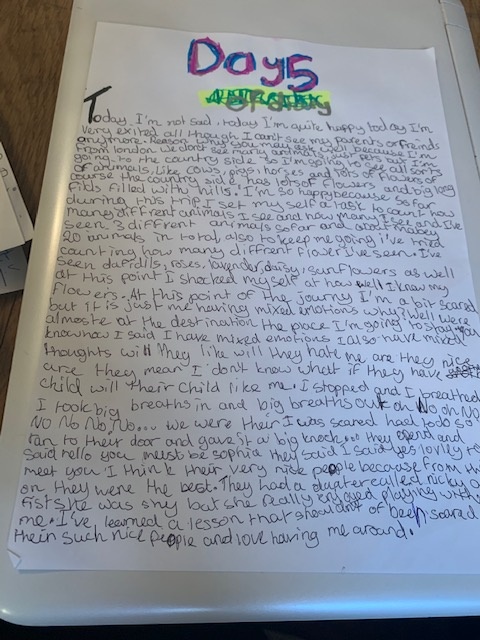 Day 5
of diary
Today I'm not sad, today I'm quite happy today I'm
very exited all though I can't see my parents or freinds
anymore. Reason why you may ask well because I'm
from london we dont see many animals just pets but I'm
going to the country side so I'm going to see all sorts
of animals, like cows, pigs, horses and lots of animals of
course the country side has lots of flowers and big long
filds filled with hills. I'm so happy because so far
durring this trip I set my self a task to count how
many diffrent animals I see and how many. and I've
seen 3 diffrent animals so far and about
20 animals in total, also to keep me going i've tried
counting how many diffrent flower i've seen. I've
seen dafidills, roses, lavender, daisy, sunflowers as well
at this point I shocked myself at how well I know my
flowers. At this point of the journy I'm a bit scared
but it is just me having mixed emotions why? Well were
almoste at the destination the place I'm going to stay you
know how I said I have mixed emotions I also have mixed
thoughts will they like will they hate me are they nice
are they mean I don't know what if they have
child will their child like me. I stopped and I breathed
I took big breaths in and big breaths out oh No oh No
No No No, No... we were their I was scared had todo so
ran to their door and gave it a big knock... they opend and
said hello you must be sophia they said I said yes lovley to
meet you I think their very nice people because from th
on they were the best. They had a duater called nicky a
fist she was shy but she really enjoyed playing with
me. I've learned a lesson that I shouldnt of been scared
their such nice people and love having me around.